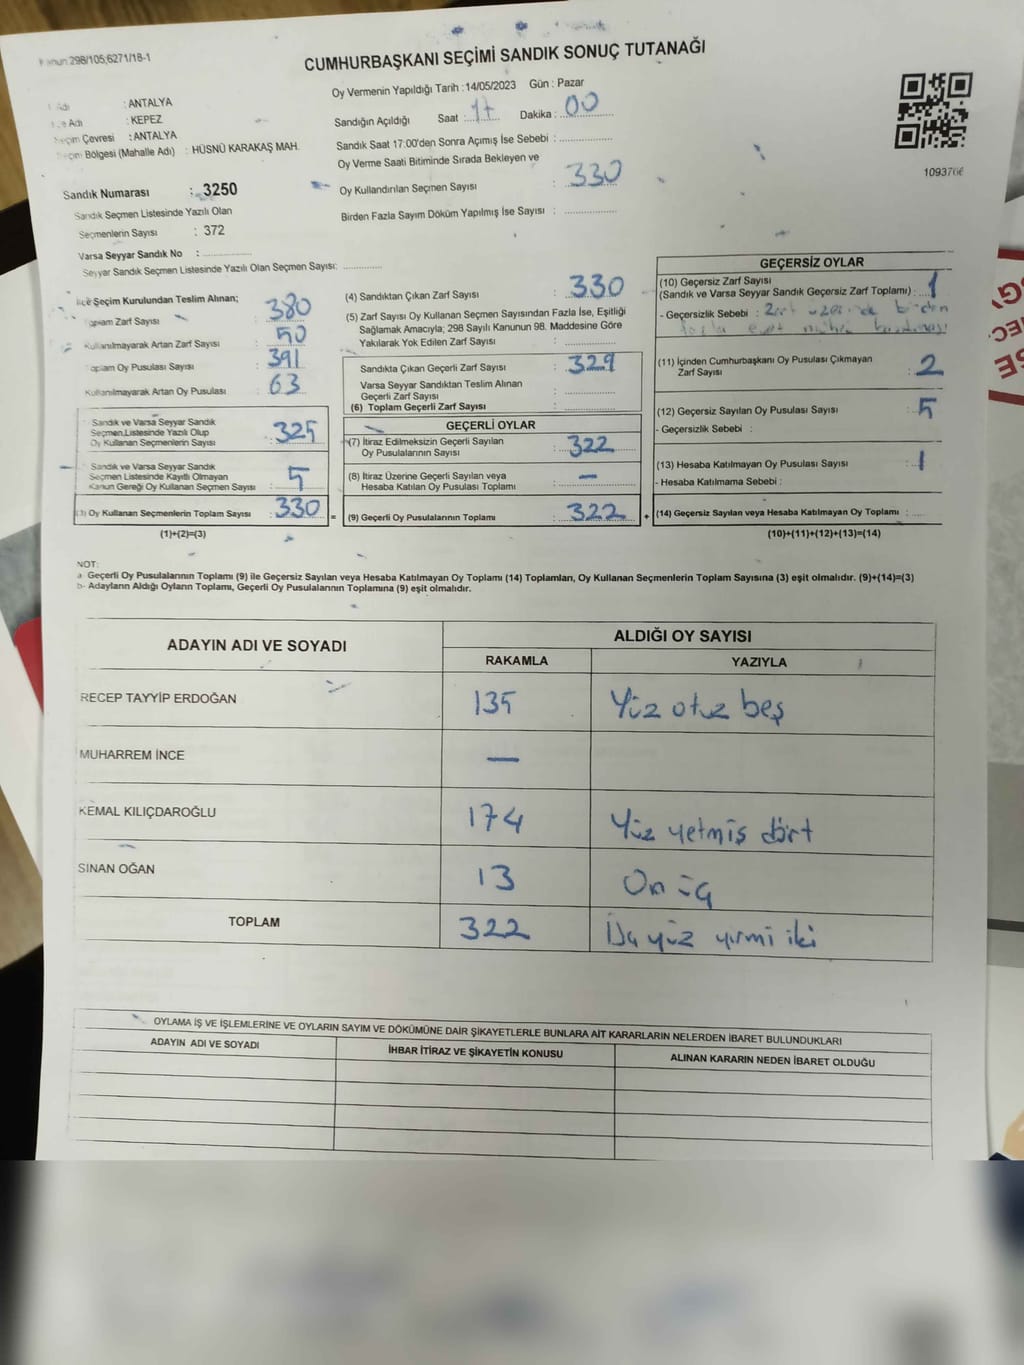 298/105,6271/18-1
CUMHURBAŞKANI SEÇİMİ SANDIK SONUÇ TUTANAĞI
Oy Vermenin Yapıldığı Tarih :14/05/2023 Gün : Pazar
Adı : ANTALYA
Adı : KEPEZ
Seçim Çevresi : ANTALYA
Seçim Bölgesi (Mahalle Adı) : HÜSNÜ KARAKAŞ MAH.
Sandığın Açıldığı Saat :17 Dakika : 00
Sandık Saat 17:00'den Sonra Açımış İse Sebebi :
Oy Verme Saati Bitiminde Sırada Bekleyen ve
Oy Kullandırılan Seçmen Sayısı : 330
Birden Fazla Sayım Döküm Yapılmış İse Sayısı :
109376
Sandık Numarası : 3250
Sandık Seçmen Listesinde Yazılı Olan
Seçmenlerin Sayısı : 372
Varsa Seyyar Sandık No :
Seyyar Sandık Seçmen Listesinde Yazılı Olan Seçmen Sayısı:
İlçe Seçim Kurulundan Teslim Alınan;
Toplam Zarf Sayısı : 380
Kullanılmayarak Artan Zarf Sayısı : 50
Toplam Oy Pusulası Sayısı : 391
Kullanılmayarak Artan Oy Pusulası : 63
Sandık ve Varsa Seyyar Sandık
Seçmen Listesinde Yazılı Olup
Oy Kullanan Seçmenlerin Sayısı : 325
Sandık ve Varsa Seyyar Sandık
Seçmen Listesinde Kayıtlı Olmayan
Kanun Gereği Oy Kullanan Seçmen Sayısı : 5
Oy Kullanan Seçmenlerin Toplam Sayısı : 330 =
(1)+(2)=(3)
(4) Sandıktan Çıkan Zarf Sayısı : 330
(5) Zarf Sayısı Oy Kullanan Seçmen Sayısından Fazla İse, Eşitliği
Sağlamak Amacıyla; 298 Sayılı Kanunun 98. Maddesine Göre
Yakılarak Yok Edilen Zarf Sayısı :
Sandıkta Çıkan Geçerli Zarf Sayısı : 329
Varsa Seyyar Sandıktan Teslim Alınan
Geçerli Zarf Sayısı :
(6) Toplam Geçerli Zarf Sayısı :
GEÇERLİ OYLAR
(7) İtiraz Edilmeksizin Geçerli Sayılan
Oy Pusulalarının Sayısı : 322
(8) İtiraz Üzerine Geçerli Sayılan veya
Hesaba Katılan Oy Pusulası Toplamı : —
(9) Geçerli Oy Pusulalarının Toplamı : 322 +
GEÇERSİZ OYLAR
(10) Geçersiz Zarf Sayısı
(Sandık ve Varsa Seyyar Sandık Geçersiz Zarf Toplamı) : 1
- Geçersizlik Sebebi : Zarf üzerinde birden
fazla evet mührü
(11) İçinden Cumhurbaşkanı Oy Pusulası Çıkmayan
Zarf Sayısı : 2
(12) Geçersiz Sayılan Oy Pusulası Sayısı : 5
- Geçersizlik Sebebi :
(13) Hesaba Katılmayan Oy Pusulası Sayısı : 1
- Hesaba Katılmama Sebebi :
(14) Geçersiz Sayılan veya Hesaba Katılmayan Oy Toplamı :
(10)+(11)+(12)+(13)=(14)
NOT:
a- Geçerli Oy Pusulalarının Toplamı (9) ile Geçersiz Sayılan veya Hesaba Katılmayan Oy Toplamı (14) Toplamları, Oy Kullanan Seçmenlerin Toplam Sayısına (3) eşit olmalıdır. (9)+(14)=(3)
b- Adayların Aldığı Oyların Toplamı, Geçerli Oy Pusulalarının Toplamına (9) eşit olmalıdır.
ADAYIN ADI VE SOYADI ALDIĞI OY SAYISI
RAKAMLA YAZIYLA
RECEP TAYYİP ERDOĞAN 135 Yüz otuz beş
MUHARREM İNCE —
KEMAL KILIÇDAROĞLU 174 Yüz yetmiş dört
SİNAN OĞAN 13 On üç
TOPLAM 322 Üç yüz yirmi iki
OYLAMA İŞ VE İŞLEMLERİNE VE OYLARIN SAYIM VE DÖKÜMÜNE DAİR ŞİKAYETLERLE BUNLARA AİT KARARLARIN NELERDEN İBARET BULUNDUKLARI
ADAYIN ADI VE SOYADI İHBAR İTİRAZ VE ŞİKAYETİN KONUSU ALINAN KARARIN NEDEN İBARET OLDUĞU